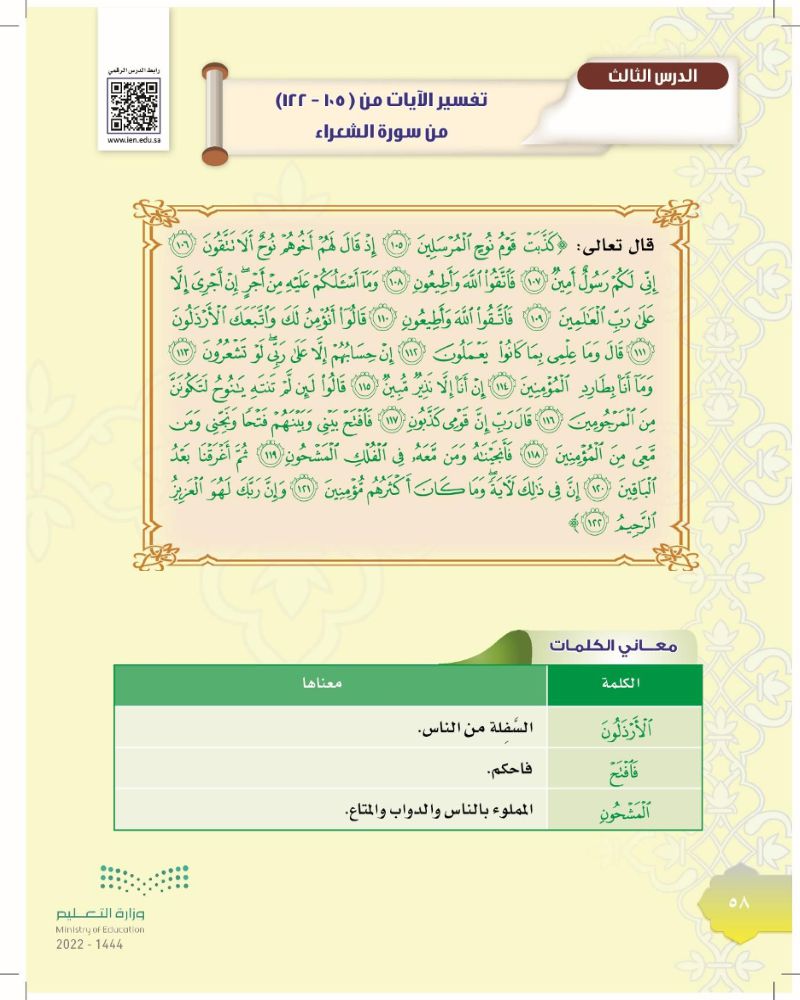 رابط الدرس الرقمي
www.ien.edu.sa
الدرس الثالث
تفسير الآيات من (١٠٥ - ١٢٢)
من سورة الشعراء
قال تعالى: ﴿كَذَّبَتْ قَوْمُ نُوحٍ الْمُرْسَلِينَ ١٠٥ إِذْ قَالَ لَهُمْ أَخُوهُمْ نُوحٌ أَلَا تَتَّقُونَ ١٠٦
إِنِّي لَكُمْ رَسُولٌ أَمِينٌ ١٠٧ فَاتَّقُوا اللَّهَ وَأَطِيعُونِ ١٠٨ وَمَا أَسْأَلُكُمْ عَلَيْهِ مِنْ أَجْرٍ إِنْ أَجْرِيَ إِلَّا
عَلَى رَبِّ الْعَالَمِينَ ١٠٩ فَاتَّقُوا اللَّهَ وَأَطِيعُونِ ١١٠ قَالُوا أَنُؤْمِنُ لَكَ وَاتَّبَعَكَ الْأَرْذَلُونَ
١١١ قَالَ وَمَا عِلْمِي بِمَا كَانُوا يَعْمَلُونَ ١١٢ إِنْ حِسَابُهُمْ إِلَّا عَلَى رَبِّي لَوْ تَشْعُرُونَ ١١٣
وَمَا أَنَا بِطَارِدِ الْمُؤْمِنِينَ ١١٤ إِنْ أَنَا إِلَّا نَذِيرٌ مُّبِينٌ ١١٥ قَالُوا لَئِن لَّمْ تَنتَهِ يَا نُوحُ لَتَكُونَنَّ
مِنَ الْمَرْجُومِينَ ١١٦ قَالَ رَبِّ إِنَّ قَوْمِي كَذَّبُونِ ١١٧ فَافْتَحْ بَيْنِي وَبَيْنَهُمْ فَتْحًا وَنَجِّنِي وَمَن
مَّعِيَ مِنَ الْمُؤْمِنِينَ ١١٨ فَأَنجَيْنَاهُ وَمَن مَّعَهُ فِي الْفُلْكِ الْمَشْحُونِ ١١٩ ثُمَّ أَغْرَقْنَا بَعْدُ
الْبَاقِينَ ١٢٠ إِنَّ فِي ذَلِكَ لَآيَةً وَمَا كَانَ أَكْثَرُهُم مُّؤْمِنِينَ ١٢١ وَإِنَّ رَبَّكَ لَهُوَ الْعَزِيزُ
الرَّحِيمُ ١٢٢﴾
معـــاني الكلمات
الكلمة معناها
الْأَرْذَلُونَ السَّفِلة من الناس.
فَافْتَحْ فاحكم.
الْمَشْحُونِ المملوء بالناس والدواب والمتاع.
وزارة التعـــليم
Ministry of Education
2022 - 1444
٥٨